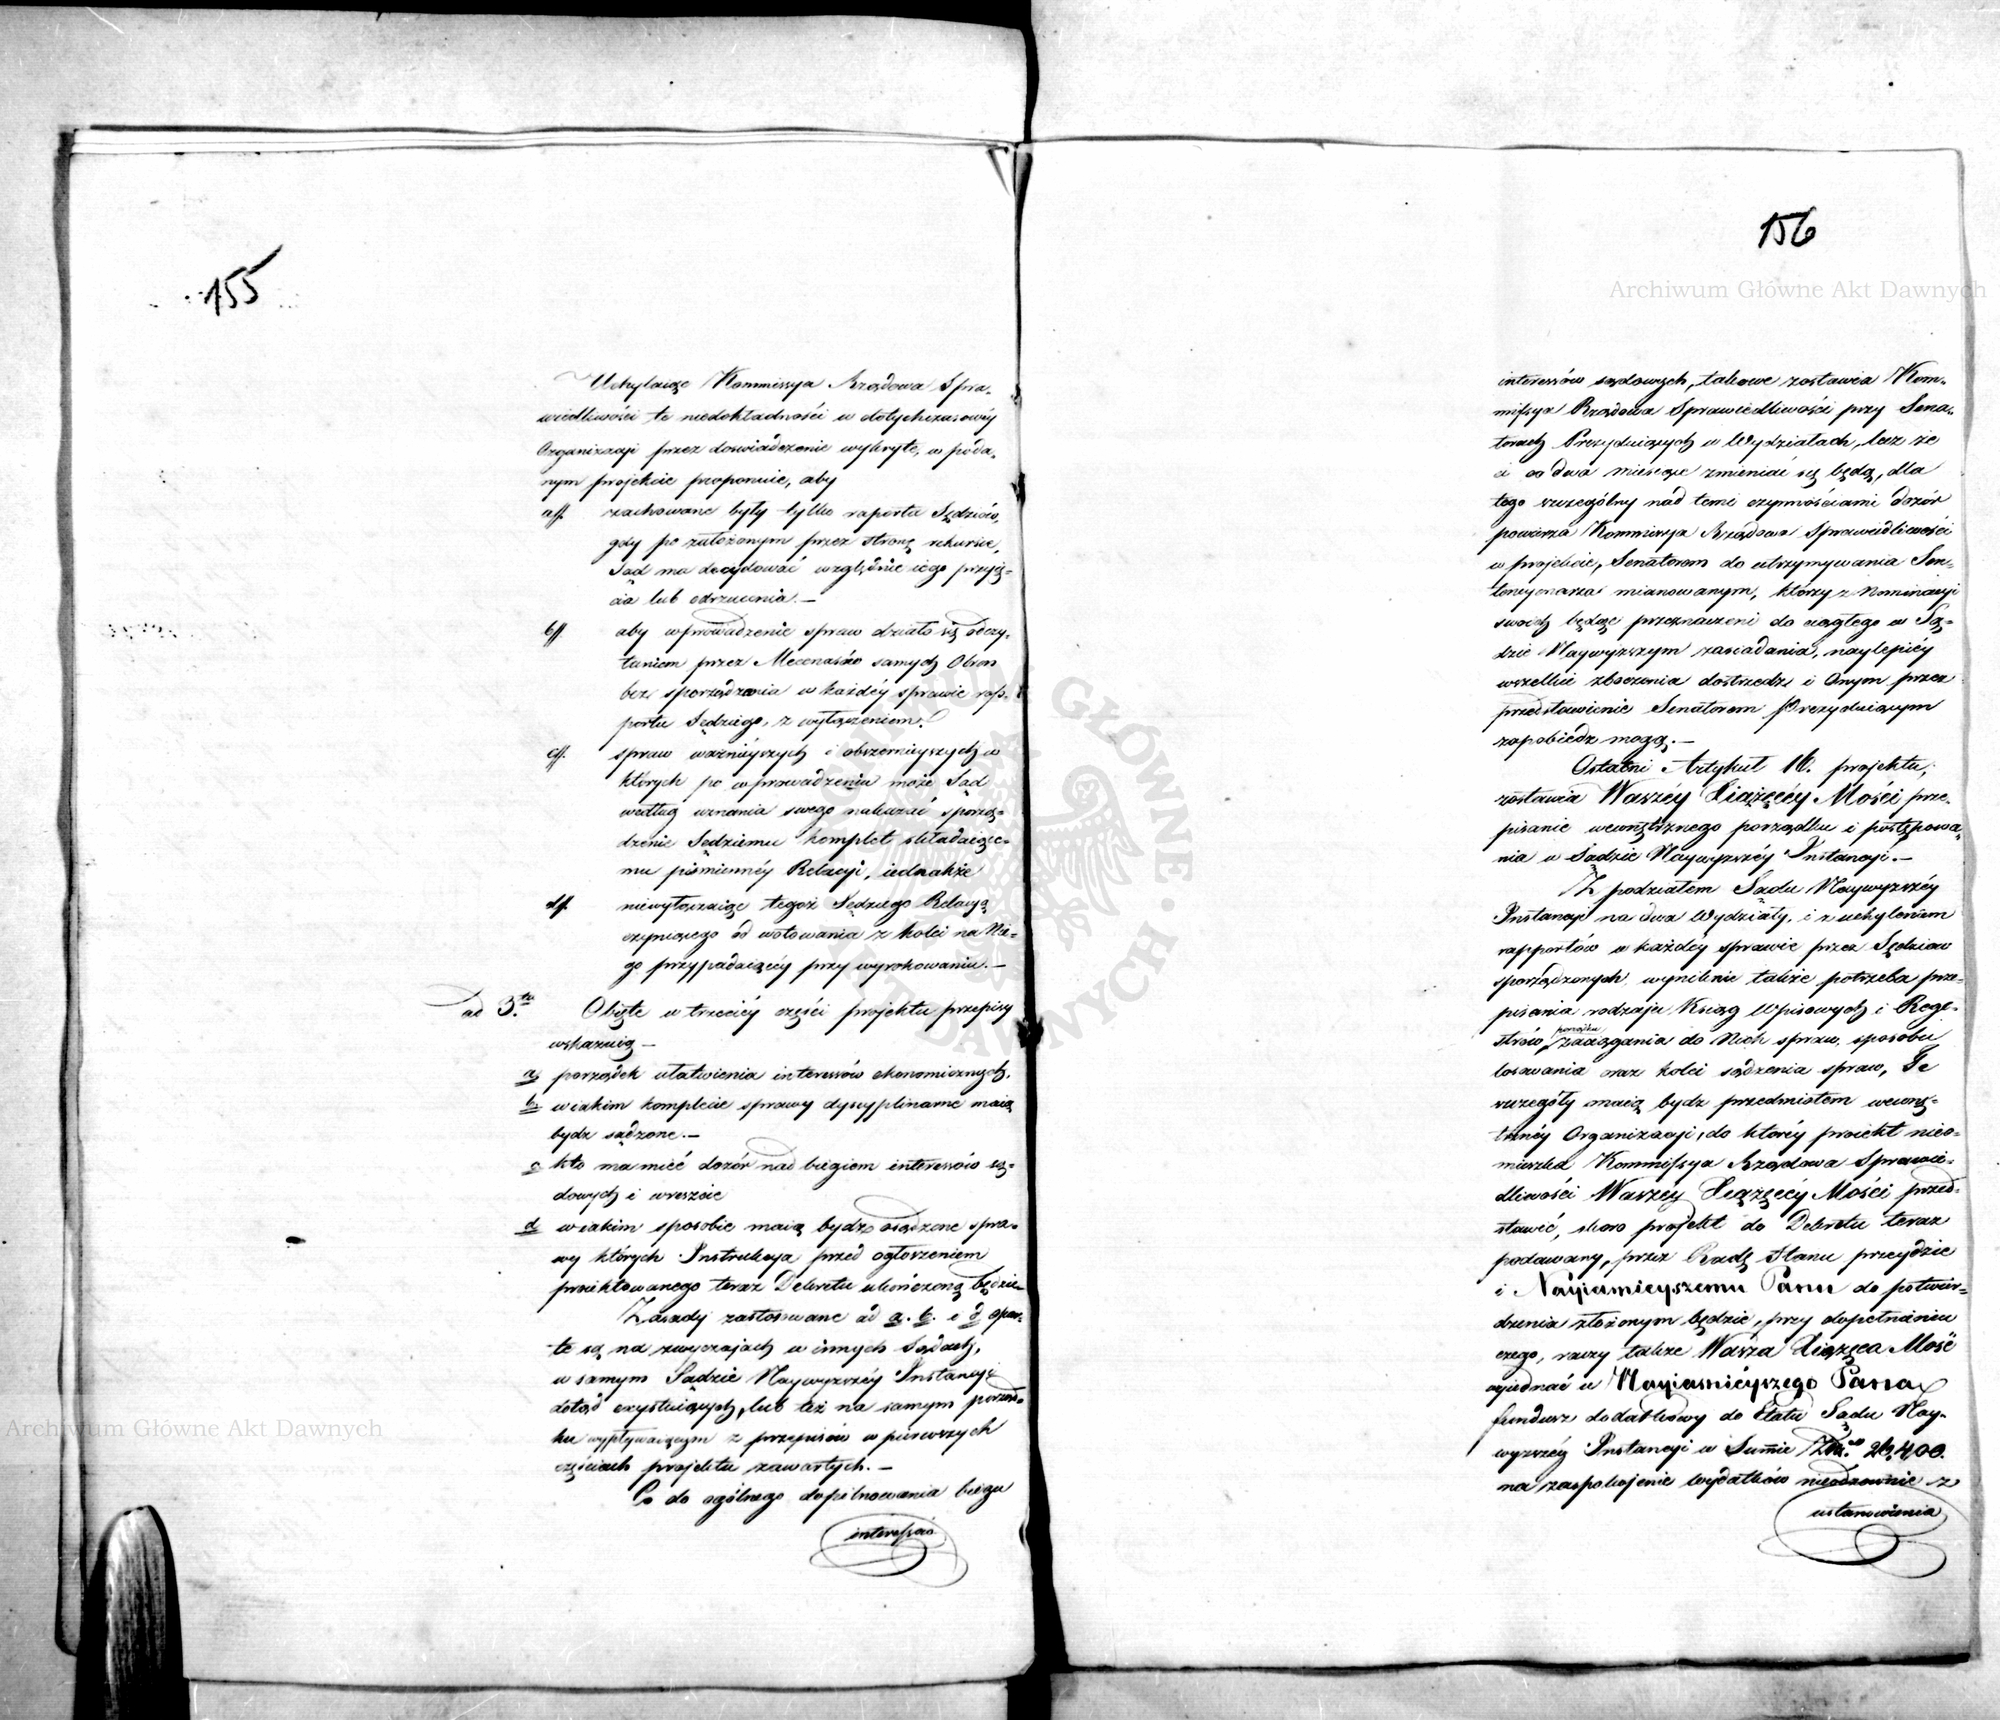 155
Uchylaiąc Kommissya Rządowa Spra-
wiedliwości te niedokładności w dotychczasowéy
Organizacyi przez doświadczenie wykryte, w poda-
nym projekcie proponuie, aby
a/ zachowane były tylko raporta Sędziów,
gdy po założonym przez stronę rekursie,
Sąd ma decydować względnie iego przyię-
cia lub odrzucenia. —
b/ aby wprowadzenie spraw działo się odczy-
taniem przez Mecenasów samych Obron
bez sporządzenia w każdéy sprawie rap-
portu Sędziego, z wyłączeniem.
c/ spraw ważnieyszych i obszernieyszych w
których po wprowadzeniu może Sąd
według uznania swego nakazać sporzą-
dzenie Sędziemu komplet składaiące-
mu piśmiennéy Relacyi, iednakże
d/ niewyłączaiąc tegoż Sędziego Relacyą
czyniącego od wotowania z kolei na Nie-
go przypadaiącéy przy wyrokowaniu. —
ad 3.tio Obięte w trzeciéy części projektu przepisy
wskazuią —
a, porządek ułatwienia interessów ekonomicznych,
b, w iakim komplecie sprawy dyscyplinarne maią
bydź sądzone. —
c kto ma mieć dozór nad biegiem interessów są-
dowych i wreszcie
d w iakim sposobie maią bydź osądzone spra-
wy których Instrukcya przed ogłoszeniem
proiektowanego teraz Dekretu ukończoną będzie.
Zasady zastosowane ad a. b. i d opar-
te są na zwyczajach w innych Sądach,
w samym Sądzie Naywyższéy Instancyi
dotąd exystuiących, lub też na samym porząd-
ku wypływaiącym z przepisów w pierwszych
częściach projektu zawartych. —
Co do ogólnego dopilnowania biegu
interessów
156
interessów sądowych, takowe zostawia Kom-
missya Rządowa Sprawiedliwości przy Sena-
torach Prezyduiących w Wydziałach, lecz że
ci co dwa miesiące zmieniać się będą, dla
tego szczególny nad temi czynnościami dozór
powierza Kommissya Rządowa Sprawiedliwości
w projekcie, Senatorom do utrzymywania Sen-
tencyonarza mianowanym, którzy z Nominacyi
swoich będąc przeznaczeni do ciągłego w Są-
dzie Naywyższym zasiadania, naylepiéy
wszelkie zboczenia dostrzedz i Onym przez
przedstawienie Senatorom Prezyduiącym
zapobiedz mogą. —
Ostatni Artykuł 16. projektu,
zostawia Waszéy Xiążęcéy Mości prze-
pisanie wewnętrznego porządku i postępowa-
nia w Sądzie Naywyższéy Instancyi. —
Z podziałem Sądu Naywyższéy
Instancyi na dwa Wydziały, i z uchyleniem
rapportów w każdéy sprawie przez Sędziów
sporządzonych wyniknie także potrzeba prze-
pisania rodzaju Ksiąg Wpisowych i Rege-
strów, porządku zaciągania do Nich spraw, sposobu
losowania oraz kolei sądzenia spraw, Te
szczegóły maią bydź przedmiotem wewnę-
trznéy Organizacyi, do któréy proiekt nieo-
mieszka Kommissya Rządowa Sprawie-
dliwości Waszéy Xiążęcéy Mości przed-
stawić, skoro projekt do Dekretu teraz
podawany, przez Radę Stanu przeydzie
i Nayiaśnieyszemu Panu do potwier-
dzenia złożonym będzie, przy dopełnieniu
czego, raczy także Wasza Xiążęca Mość
wyiednać u Nayiaśnieyszego Pana
fundusz dodatkowy do Etatu Sądu Nay-
wyższéy Instancyi w Summie 26,400.
na zaspokojenie wydatków nieodzownie z
ustanowienia
Archiwum Główne Akt Dawnych
Archiwum Główne Akt Dawnych